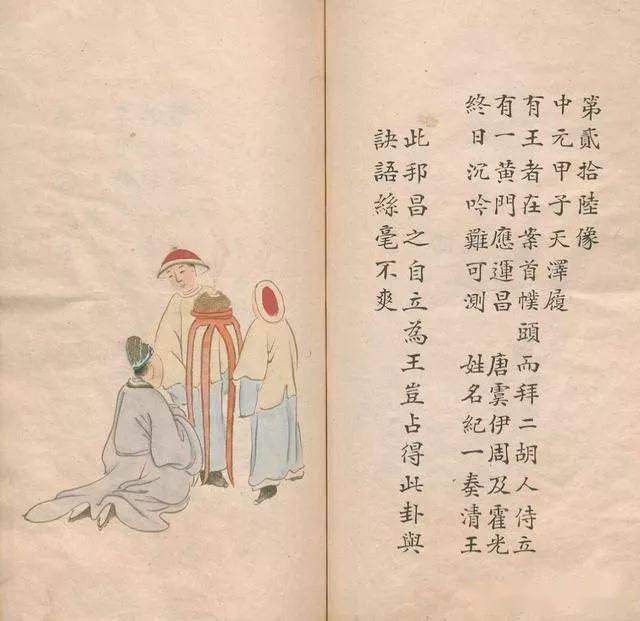 第貳拾陸像
中元甲子天澤履
有王者在案首幞頭而拜二胡人侍立
有一黄門應運昌　唐虞伊周及霍光
終日沉吟難可測　姓名紀一奏清王
此邦昌之自立為王豈占得此卦與
訣語絲毫不爽